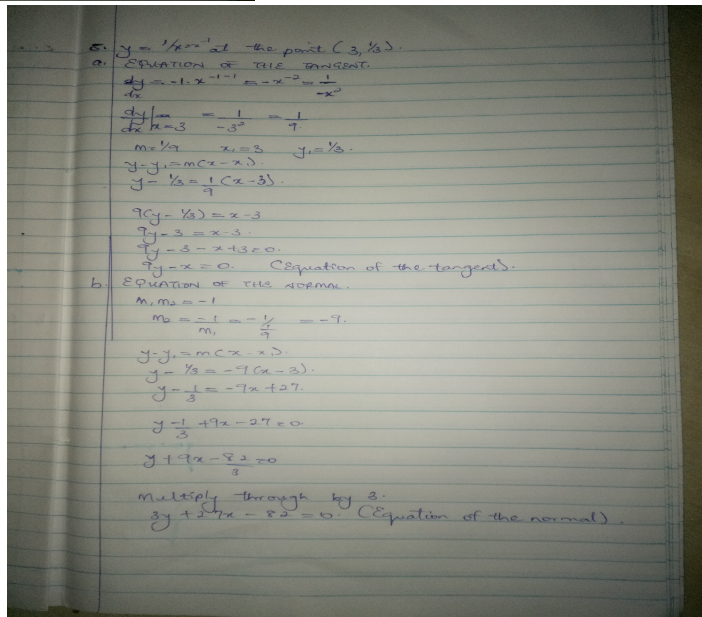 5. y = 1/x = x⁻¹ at the point (3, 1/3).
a. EQUATION OF THE TANGENT.
dy/dx = -1·x⁻¹⁻¹ = -x⁻² = 1/-x²
dy/dx | x=3 = 1/-3² = 1/9.
m = 1/9 x₁ = 3 y₁ = 1/3.
y - y₁ = m(x - x₁).
y - 1/3 = 1/9 (x - 3).
9(y - 1/3) = x - 3
9y - 3 = x - 3.
9y - 3 - x + 3 = 0.
9y - x = 0. (Equation of the tangent).
b. EQUATION OF THE NORMAL.
m₁ m₂ = -1
m₂ = -1/m₁ = -1/(1/9) = -9.
y - y₁ = m(x - x₁).
y - 1/3 = -9(x - 3).
y - 1/3 = -9x + 27.
y - 1/3 + 9x - 27 = 0.
y + 9x - 82/3 = 0
Multiply through by 3.
3y + 27x - 82 = 0. (Equation of the normal).